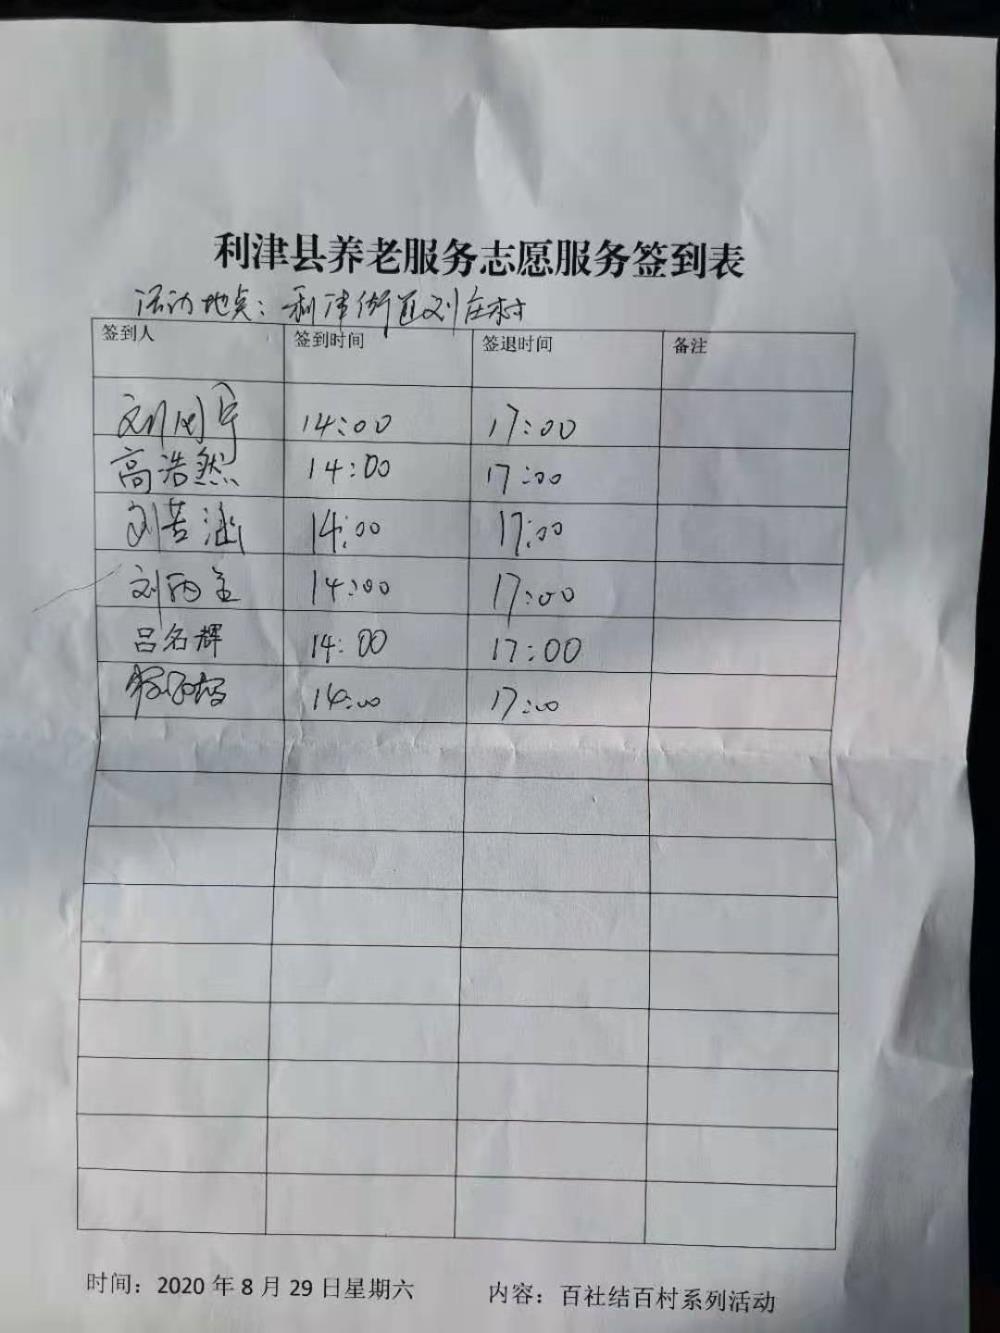 利津县养老服务志愿服务签到表
活动地点：利津街道刘庄村
签到人 签到时间 签退时间 备注
刘 14:00 17:00
高浩然 14:00 17:00
刘若涵 14:00 17:00
刘雨 14:00 17:00
吕名辉 14:00 17:00
14:00 17:00
时间：2020年8月29日星期六 内容：百社结百村系列活动